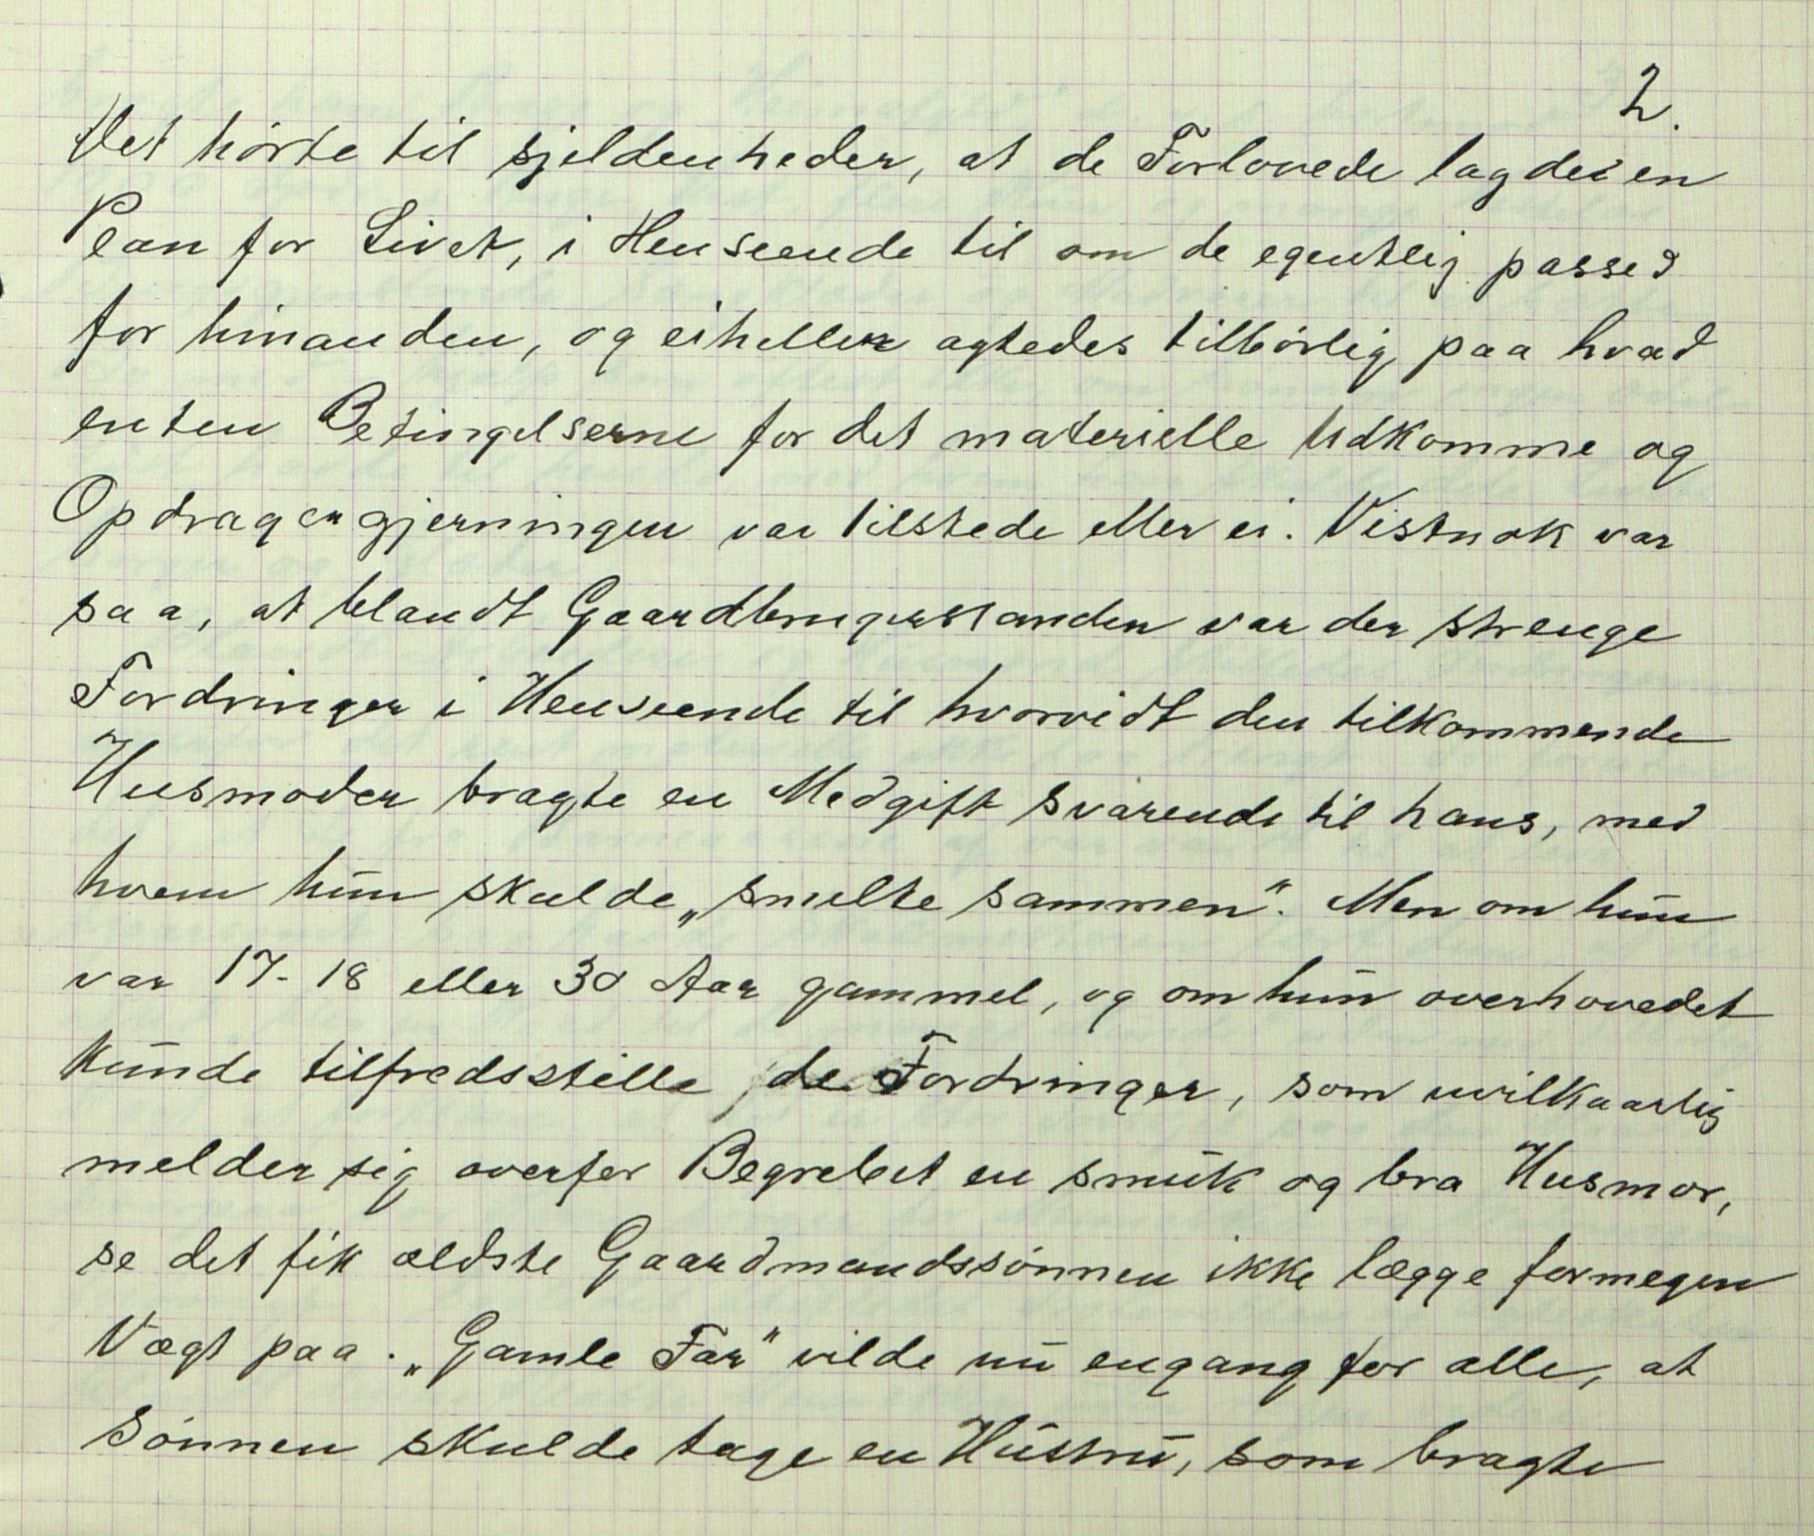 2.
Det hörte til sjeldenheder, at de Forlovede lagde en
Plan for Livet, i Henseende til om de egentlig passed
for hinanden, og eiheller agtedes tilbörlig paa hvad
enten Betingelserne for det materielle Udkomme og
Opdragergjerningen var tilstede eller ei. Vistnok var
saa, at blandt Gaardbrugerstanden var der strenge
Fordringer i Henseende til hvorvidt den tilkommende
Husmoder bragte en Medgift svarende til hans, med
hvem hun skulde „smelte sammen". Men om hun
var 17-18 eller 30 Aar gammel, og om hun overhovedet
kunde tilfredsstille de Fordringer, som uvilkaarlig
melder sig overfor Begrebet en smuk og bra Husmor,
se det fik ældste Gaardmandssönnen ikke lægge formegen
Vægt paa. „Gamle Far" vilde nu engang for alle, at
Sönnen skulde tage en Hustru, som bragte